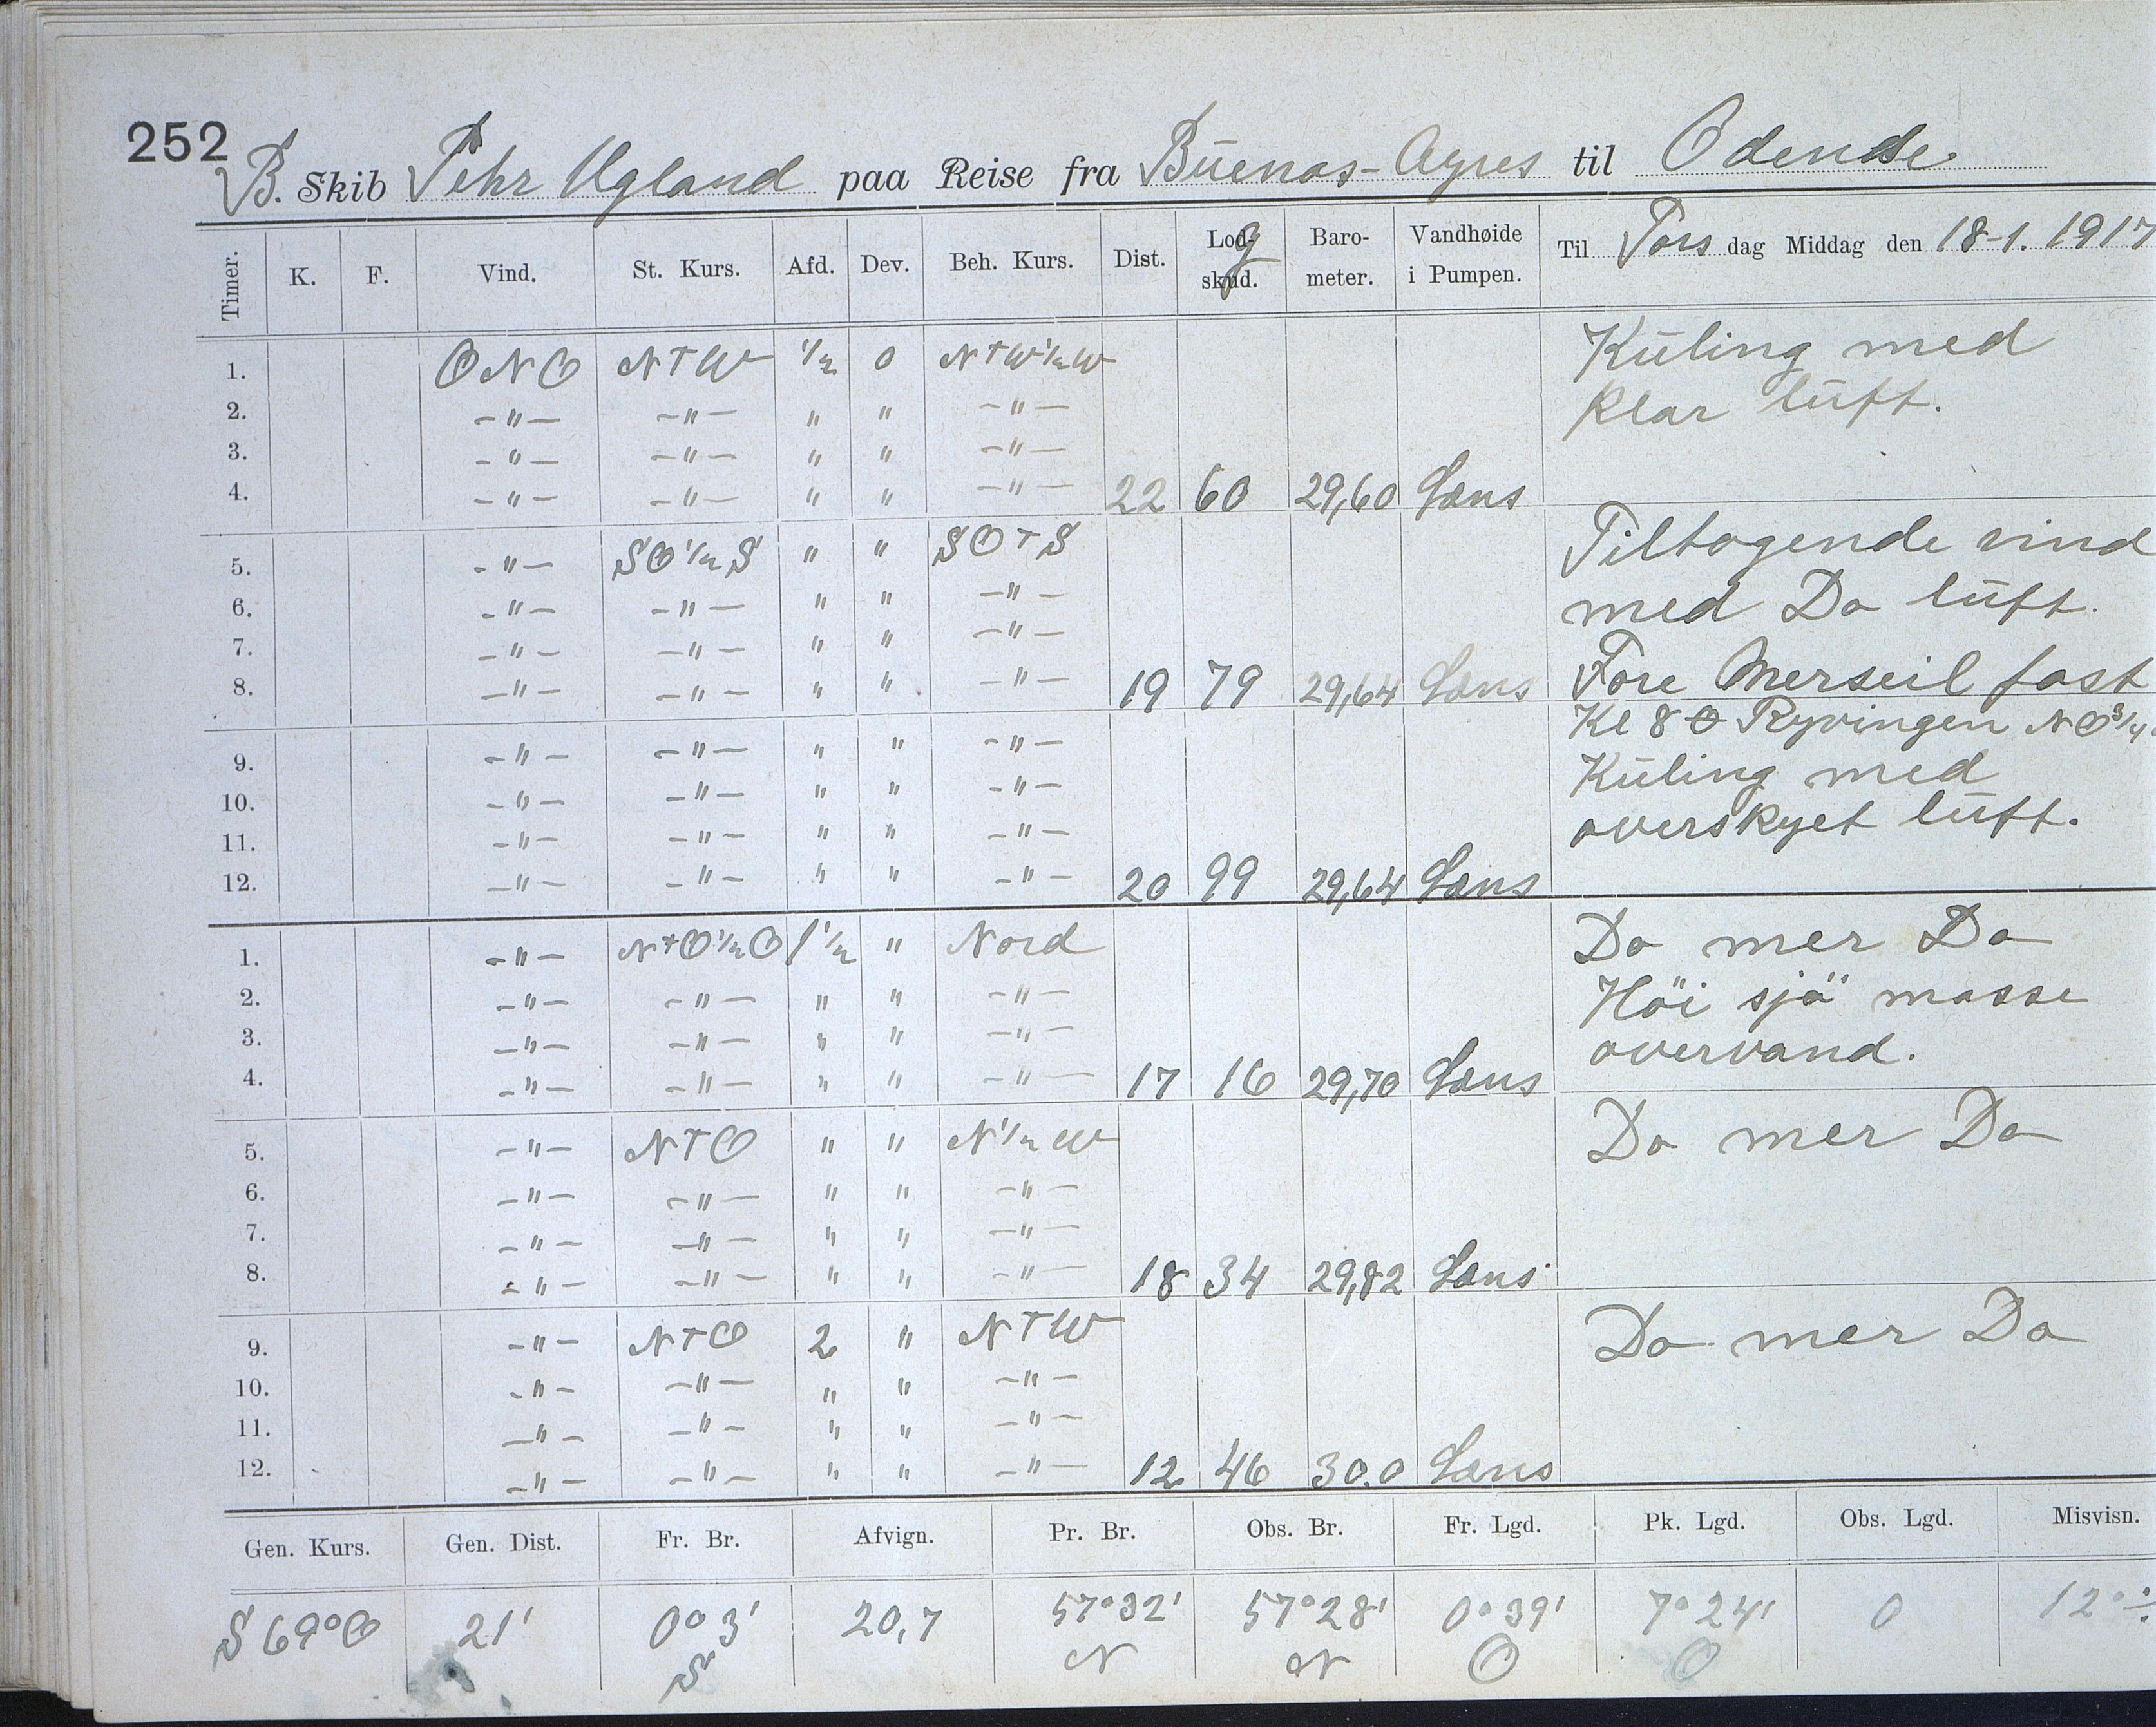 252
B. Skib Pehr Ugland paa Reise fra Büenos-Ayres til Odense
Timer. K. F. Vind. St. Kurs. Afd. Dev. Beh. Kurs. Dist. Log skud. Baro-meter. Vandhøide i Pumpen. Til Tors dag Middag den 18-1. 1917
1. ONO NTW 1/2 0 NTW1/2W Küling med
2. -"- -"- " " -"- klar lüft.
3. -"- -"- " " -"-
4. -"- -"- " " -"- 22 60 29,60 Læns
5. -"- SO1/2S " " SOTS Tiltagende vind
6. -"- -"- " " -"- med Do lüft.
7. -"- -"- " " -"-
8. -"- -"- " " -"- 19 79 29,64 Læns Fore Merseil fast
Kl 80 Ryvingen NO3/4
9. -"- -"- " " -"- Küling med
10. -"- -"- " " -"- overskyet lüft.
11. -"- -"- " " -"-
12. -"- -"- " " -"- 20 99 29,64 Læns
1. -"- NTO1/2O 1 1/2 " Nord Do mer Do
2. -"- -"- " " -"- Höi sjö masse
3. -"- -"- " " -"- overvand.
4. -"- -"- " " -"- 17 16 29,70 Læns
5. -"- NTO " " N1/2W Do mer Do
6. -"- -"- " " -"-
7. -"- -"- " " -"-
8. -"- -"- " " -"- 18 34 29,82 Læns
9. -"- NTO 2 " NTW Do mer Do
10. -"- -"- " " -"-
11. -"- -"- " " -"-
12. -"- -"- " " -"- 12 46 30.0 Læns
Gen. Kurs. Gen. Dist. Fr. Br. Afvign. Pr. Br. Obs. Br. Fr. Lgd. Pk. Lgd. Obs. Lgd. Misvisn.
S 69° O 21' 0° 3' S 20,7 57° 32' N 57° 28' N 0° 39' O 7° 24' O 0 12° ÷